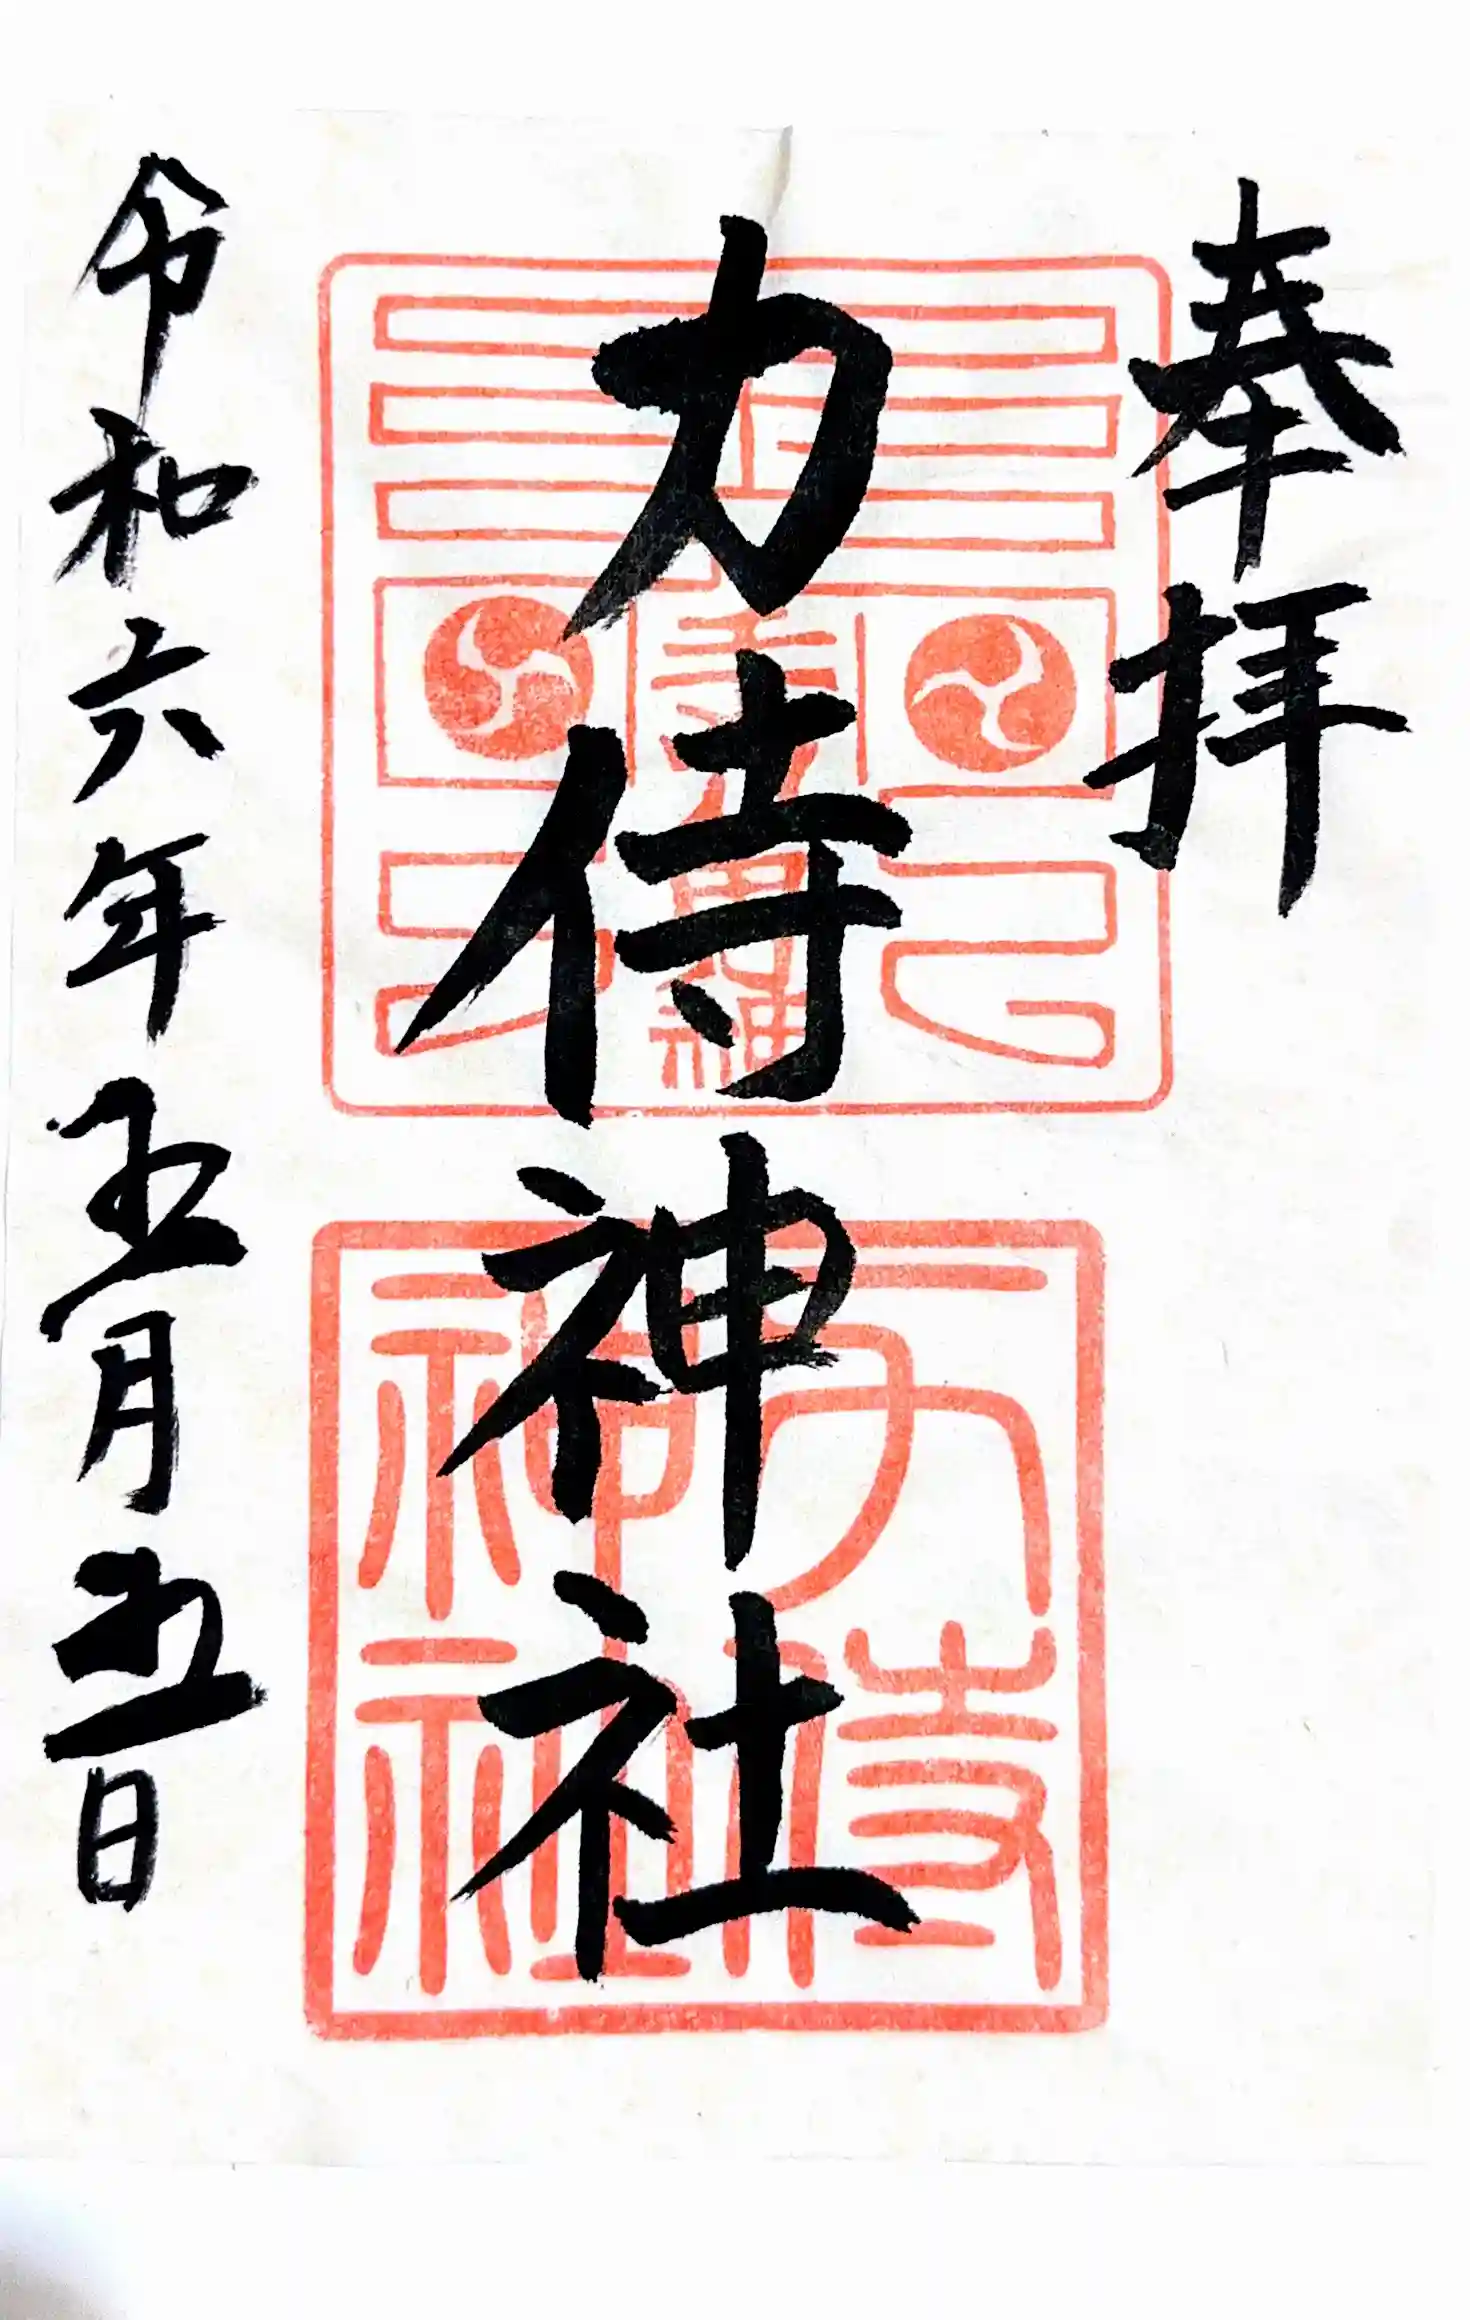 奉拝
力侍神社
力侍神社
令和六年五月五日